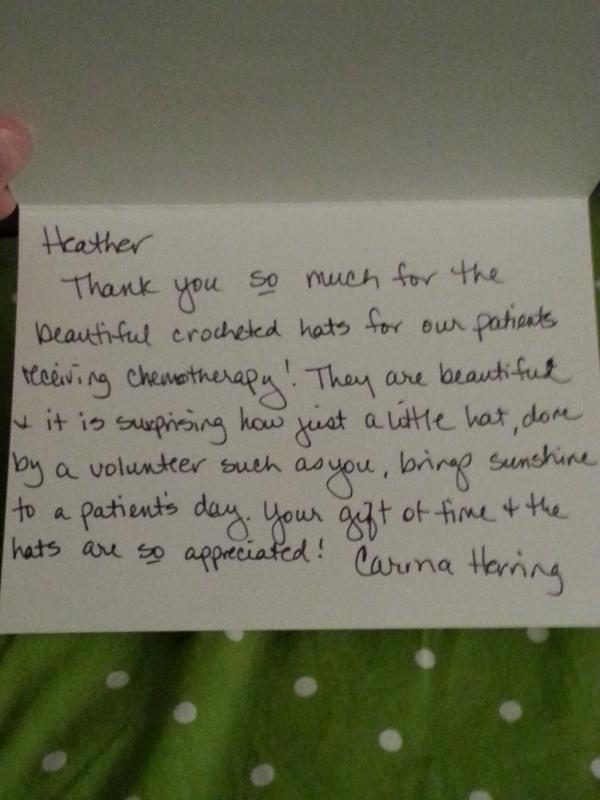 Heather
Thank you so much for the
beautiful crocheted hats for our patients
receiving chemotherapy! They are beautiful
+ it is surprising how just a little hat, done
by a volunteer such as you, brings sunshine
to a patient's day. Your gift of time + the
hats are so appreciated! Carina Herring